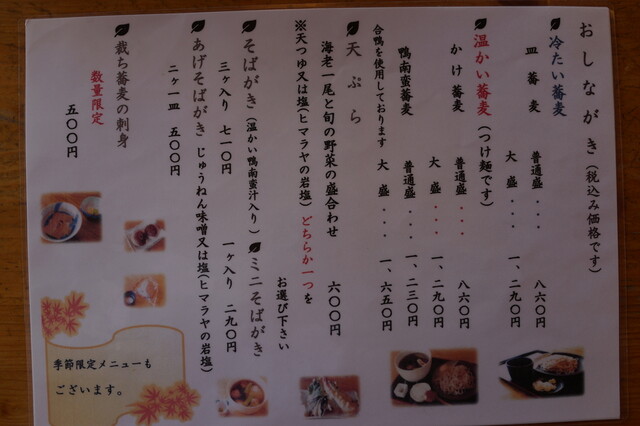 おしながき（税込み価格です）
冷たい蕎麦
皿蕎麦 普通盛・・・ 八六〇円
大盛・・・ 一、二九〇円
温かい蕎麦（つけ麺です）
かけ蕎麦 普通盛・・・ 八六〇円
大盛・・・ 一、二九〇円
鴨南蛮蕎麦 普通盛・・・ 一、二三〇円
合鴨を使用しております 大盛・・・ 一、六五〇円
天ぷら
海老一尾と旬の野菜の盛合わせ 六〇〇円
※天つゆ又は塩（ヒマラヤの岩塩）どちらか一つを
お選び下さい
そばがき（温かい鴨南蛮汁入り） ミニそばがき
三ヶ入り 七一〇円 一ヶ入り 二九〇円
あげそばがき じゅうねん味噌又は塩（ヒマラヤの岩塩）
二ヶ一皿 五〇〇円
裁ち蕎麦の刺身
数量限定
五〇〇円
季節限定メニューも
ございます。